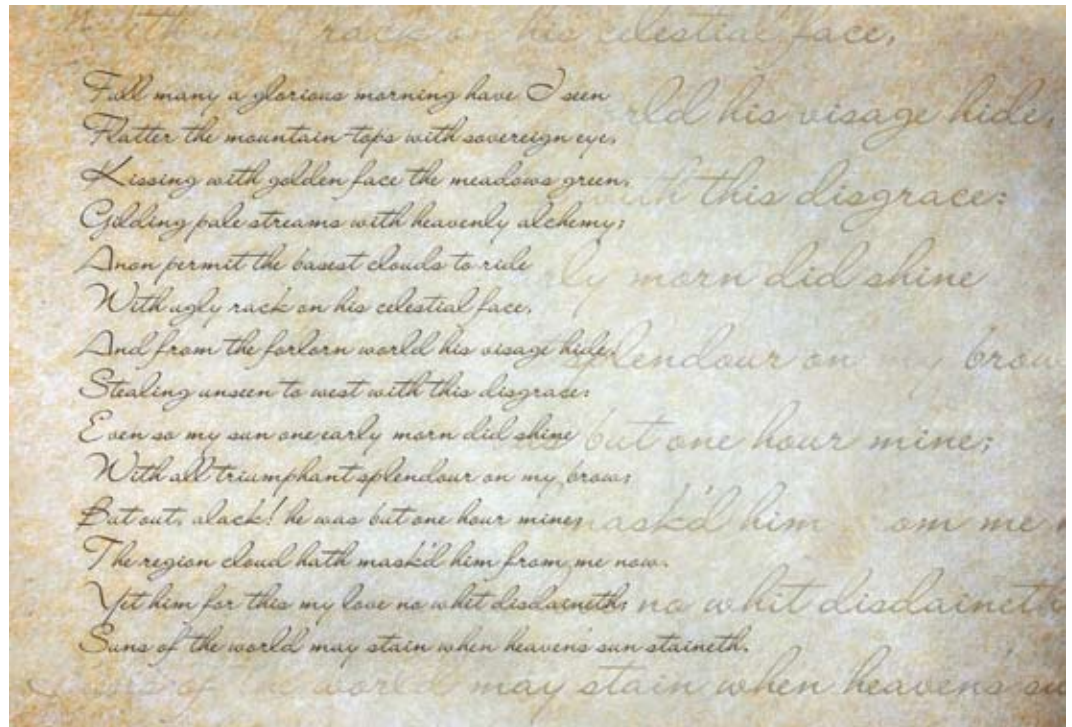 With ugly rack on his celestial face,
Full many a glorious morning have I seen
Flatter the mountain-tops with sovereign eye,
Kissing with golden face the meadows green,
Gilding pale streams with heavenly alchemy;
Anon permit the basest clouds to ride
With ugly rack on his celestial face,
And from the forlorn world his visage hide,
Stealing unseen to west with this disgrace:
Even so my sun one early morn did shine
With all triumphant splendour on my brow;
But out, alack! he was but one hour mine;
The region cloud hath mask'd him from me now.
Yet him for this my love no whit disdaineth;
Suns of the world may stain when heaven's sun staineth.
his visage hide,
with this disgrace:
morn did shine
splendour on my brow
but one hour mine;
mask'd him om me
no whit disdaineth
of the world may stain when heavens su